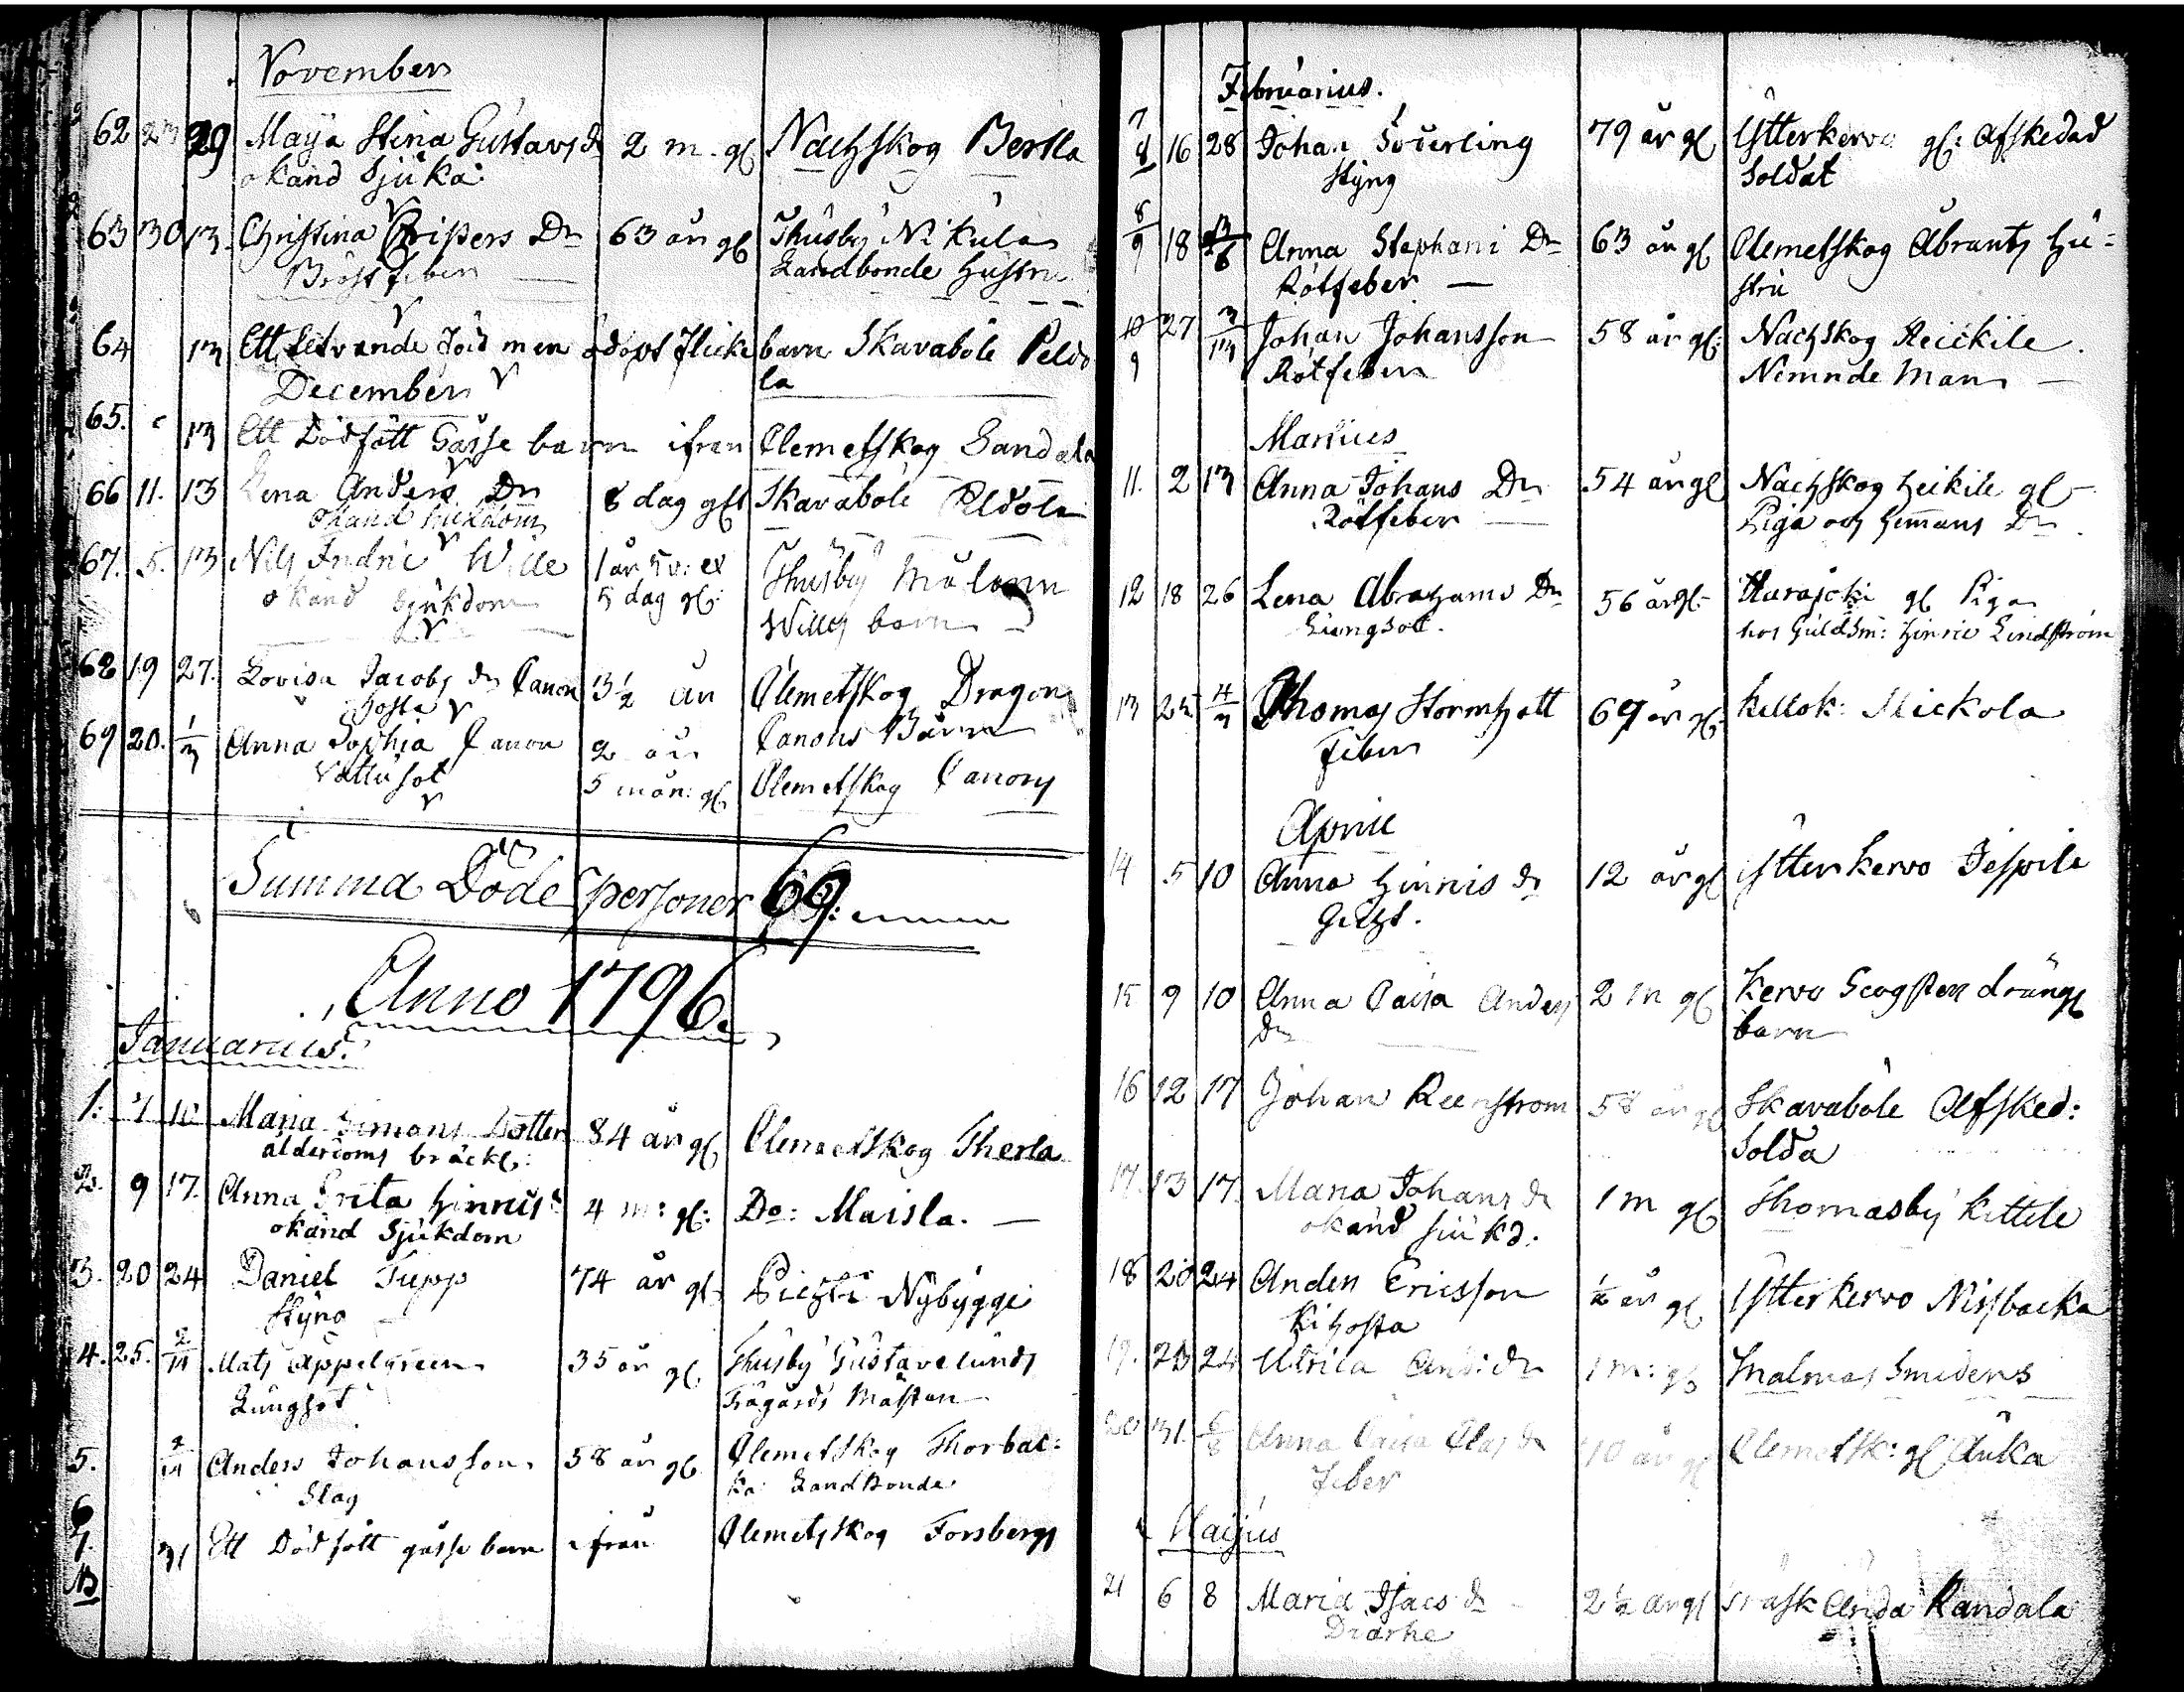 November
62 23 29 Maja Stina Gustavs dr 2 m. gl Nachskog Bertla
okänd Sjuka:
63 30 13. Christina Crispers Dr 63 år gl Thusby Nikula
Bröstfeber Landbonde Hustru
64 13 Ett Lefvande född men odöpt flicke barn Skavaböle Peldo
la
December
65. 13 Ett Dödfött Gåsse barn ifrån Clemetskog Sandala
66 11. 13 Lena Anders Dr 8 dag glt Skavaböle Peldola
okänd siukdom
67. 5. 13 Nils Indric Wille 1 år 5 v: et Thusby
okänd sjukdom 5 dag gl: Willes barn
68 19 27. Lovisa Jacobs dr Canon 3 1/2 år Clemetskog Dragon
hosta Canons Barn
69 20. 1/3 Anna Sophia Canon 2 år
Vattusot 5 mån: gl Clemetskog Canons
Summa Döde personer 69:
Anno 1796.
Januarius.
1: 4 10 Maria Simons Dotter 84 år gl Clemetskog Therla
ålderdoms bräckl:
2. 9 17. Anna Brita Hinrics d 4 m: gl: Do: Maisla.
okänd Sjukdom
3. 20 24 Daniel Tupp 74 år gl Nybygge
Styng
4. 25. 2/14 Mats Appelgreen 35 år gl. Thusby Gustavelunds
Lungsot Trägårds Mästare
5. 2/14 Anders Johansson 58 år gl. Clemetskog Thorbac:
Slag ka Landbonde
6
7. 31 Ett Dödfött gåsse barn ifrån Clemetskog Forsbergs
NB
Februarius.
7
8 16 28 Johan Söderling 79 år gl Ytterkervo gl: Afskedad
Styng Soldat
8
9 18 13/6 Anna Stephani Dr 63 år gl Clemetskog Abrants Hu=
Rötfeber stru
10 27 3/13 Johan Johansson 58 år gl: Nachskog Heickile.
9 Rötfeber Nemnde Man
Martius
11. 2 13 Anna Johans Dr 54 år gl Nachskog Heikile gl
Rötfeber Piga och Hemans Dr
12 18 26 Lena Abrahams Dr 56 år gl. Harajoki gl Piga
Lungsot. hos Guldsm: Hinric Lindström
13 25 4/3 Thomas Stormhatt 69 år gl. Kellok: Mickola
Feber
April
14 5 10 Anna Hinrics dr 12 år gl Ytterkervo Jespila
Gicht.
15 9 10 Anna Caisa Anders 2 m gl Kervo Scogster drängs
dr barn
16 12 17 Johan Reenstrom 58 år gl Skavaböle Afsked:
Solda
17. 13 17. Maria Johans dr 1 m gl Thomasby Kettele
okänd siukd.
18 20 24 Anders Ericsson 1/2 år gl Ytterkervo Nissbacka
Kikhosta
19. 23 24 Ulrica And: dr 1 m: gl Malmas Smidens
20 31. 6/8 Anna Caisa Clas dr 10 år gl Clemetsk: gl Anka
Feber
Majus
21 6 8 Maria Isacs dr 2 1/2 år gl Träsk Randala
Diarhe